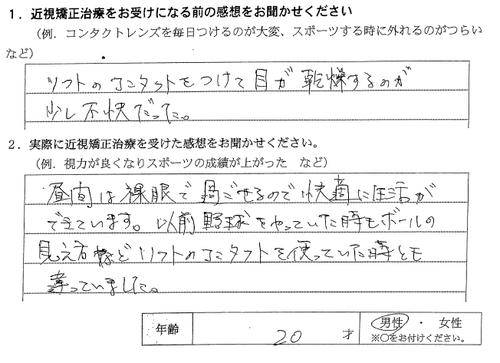 1．近視矯正治療をお受けになる前の感想をお聞かせください
（例．コンタクトレンズを毎日つけるのが大変、スポーツする時に外れるのがつらい
など）
ソフトのコンタクトをつけて目が乾燥するのが
少し不快だった。
2．実際に近視矯正治療を受けた感想をお聞かせください。
（例．視力が良くなりスポーツの成績が上がった　など）
昼間は裸眼で過ごせるので快適に生活が
できています。以前野球をやっていた時もボールの
見え方などソフトのコンタクトを使っていた時とも
違っていました。
年齢　20　才　男性　・　女性
※○をお付けください。